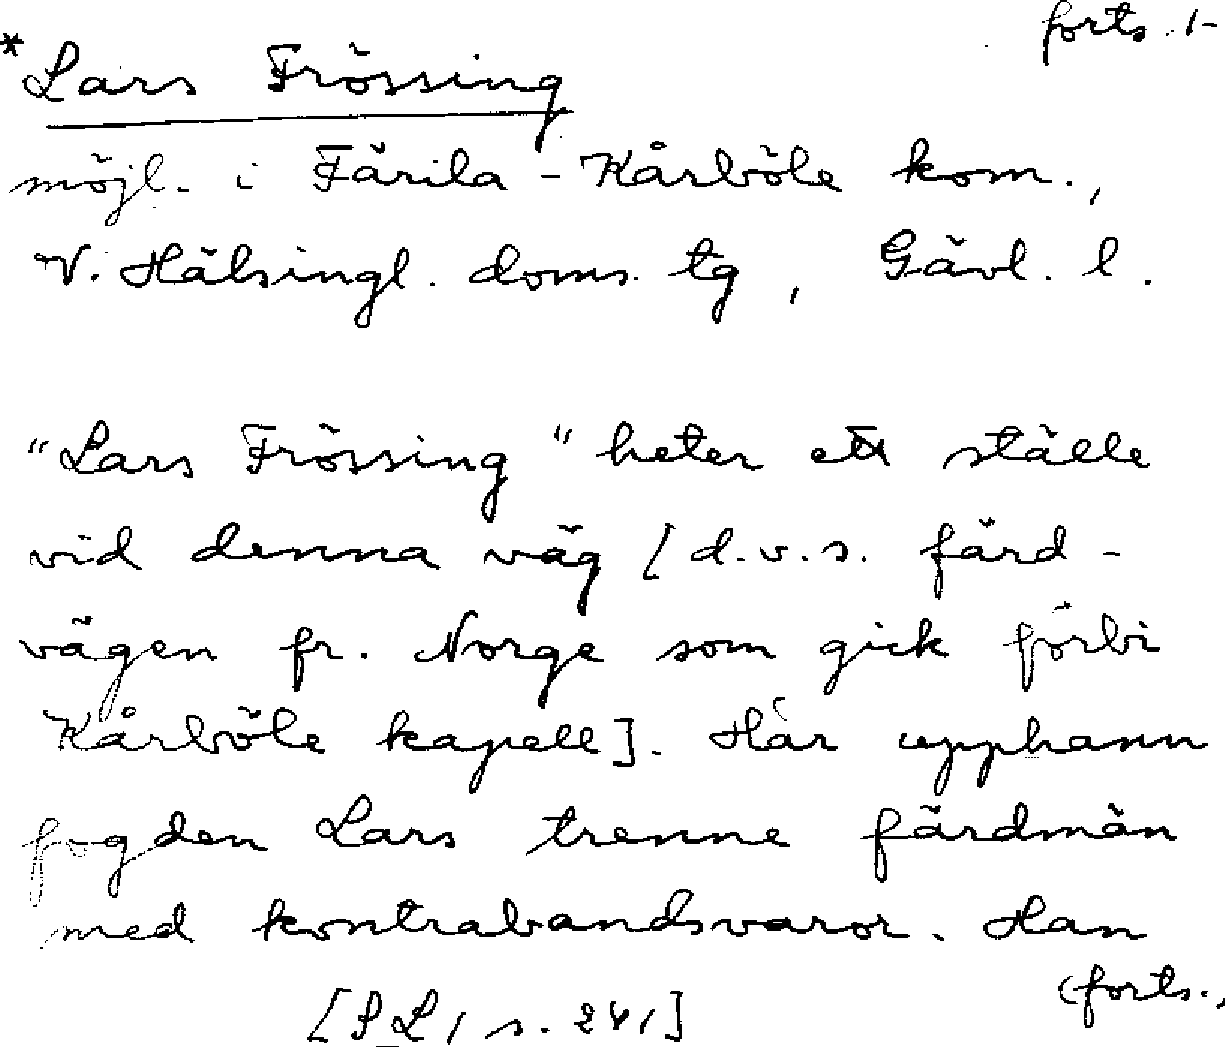 forts. 1-
*Lars Frössing
möjl. i Färila-Kårböle kom.,
V. Hälsingl. doms. tg, Gävl. l.
"Lars Frössing" heter ett ställe
vid denna väg [d.v.s. färd-
vägen fr. Norge som gick förbi
Kårböle kapell]. Här upphann
fogden Lars trenne färdmän
med kontrabandsvaror. Han
(forts.,
s. 241]